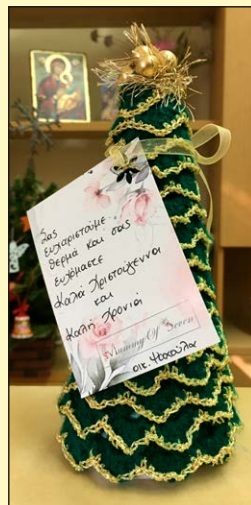 Σας
ευχαριστούμε
θερμά και σας
Ευχόμαστε
Καλά Χριστούγεννα
και
Καλή Χρονιά
Mummy Of Seven
οικ.